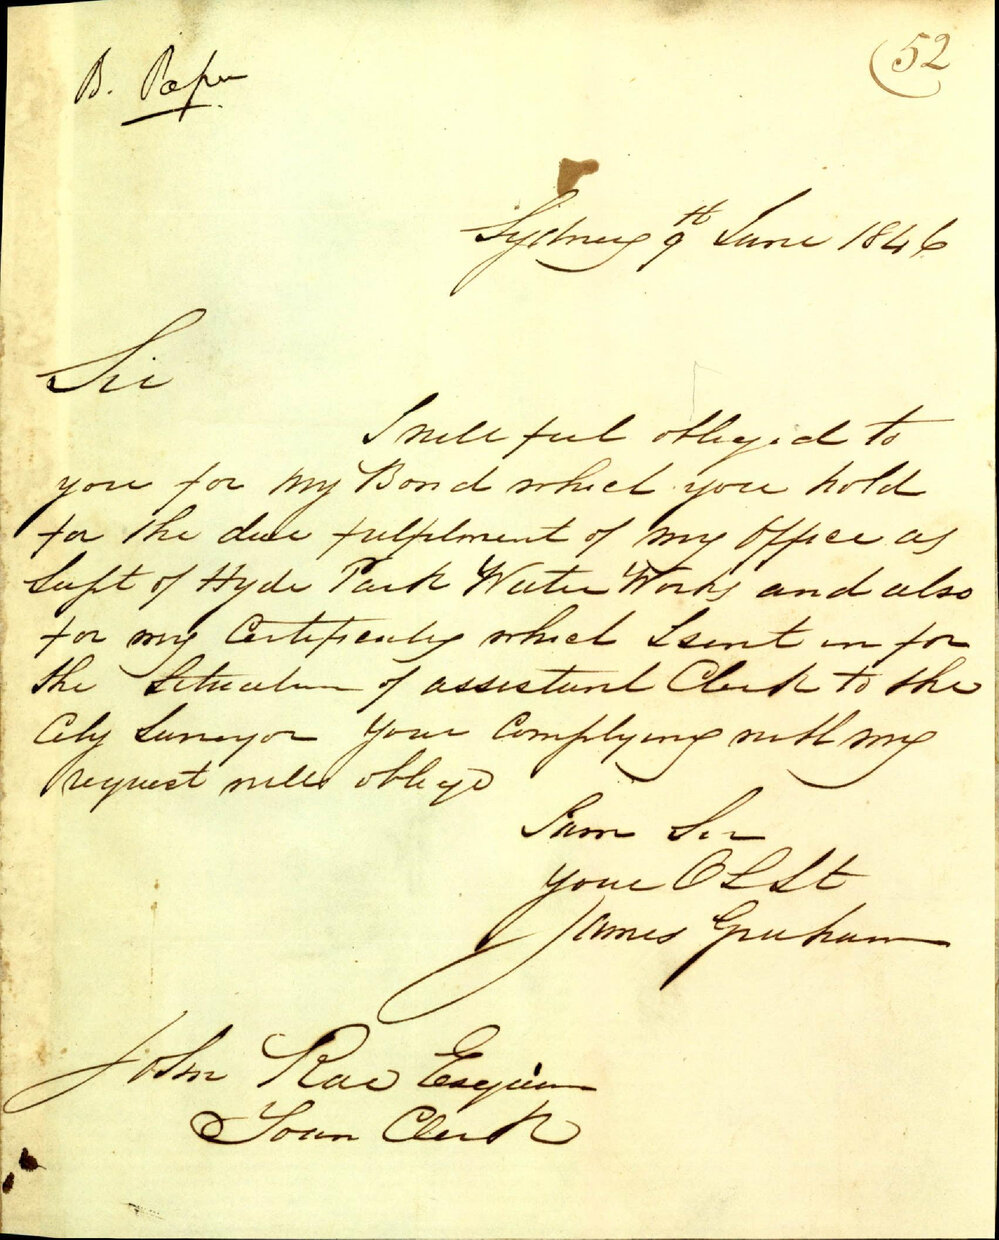 B. Paper
(52
Sydney 9th June 1846
Sir
I will feel obliged to
you for my Bond which you hold
for the due fulfilment of my Office as
Supt of Hyde Park Water Works and also
for my Certificates which I sent in for
the Situation of assistant Clerk to the
City Surveyor your Complying with my
request will oblige
I am Sir
Your O St
James Graham
John Rae Esquire
Town Clerk